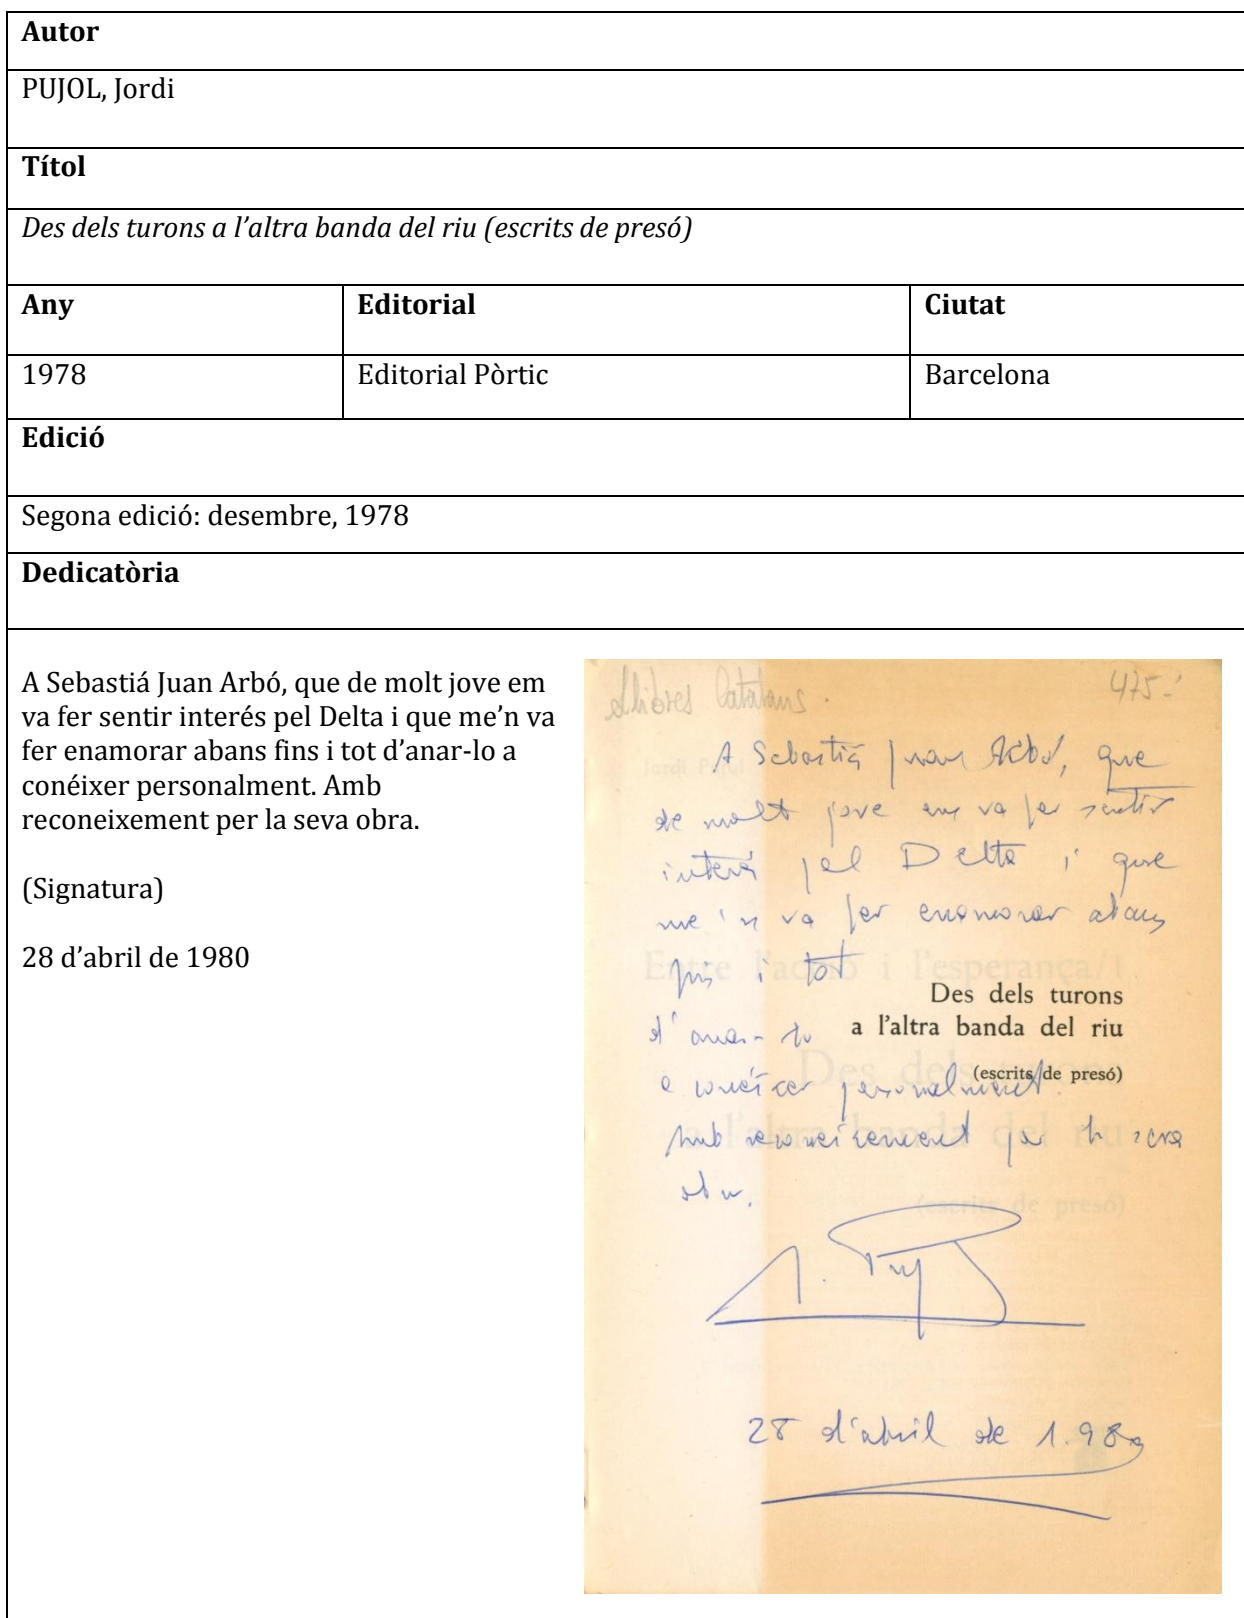 Autor
PUJOL, Jordi
Títol
Des dels turons a l’altra banda del riu (escrits de presó)
Any Editorial Ciutat
1978 Editorial Pòrtic Barcelona
Edició
Segona edició: desembre, 1978
Dedicatòria
A Sebastiá Juan Arbó, que de molt jove em
va fer sentir interés pel Delta i que me’n va
fer enamorar abans fins i tot d’anar-lo a
conéixer personalment. Amb
reconeixement per la seva obra.
(Signatura)
28 d’abril de 1980
Llibres Catalans. 475.-
Jordi Pujol
A Sebastiá Juan Arbó, que
de molt jove em va fer sentir
interés pel Delta i que
me'n va fer enamorar abans
fins i tot
Entre l'acció i l'esperança/1
Des dels turons
d'anar-lo a l'altra banda del riu
Des dels turons
(escrits de presó)
a conéixer personalment.
a l'altra banda del riu
Amb reconeixement per la seva
obra.
(escrits de presó)
J. Pujol
28 d'abril de 1.980